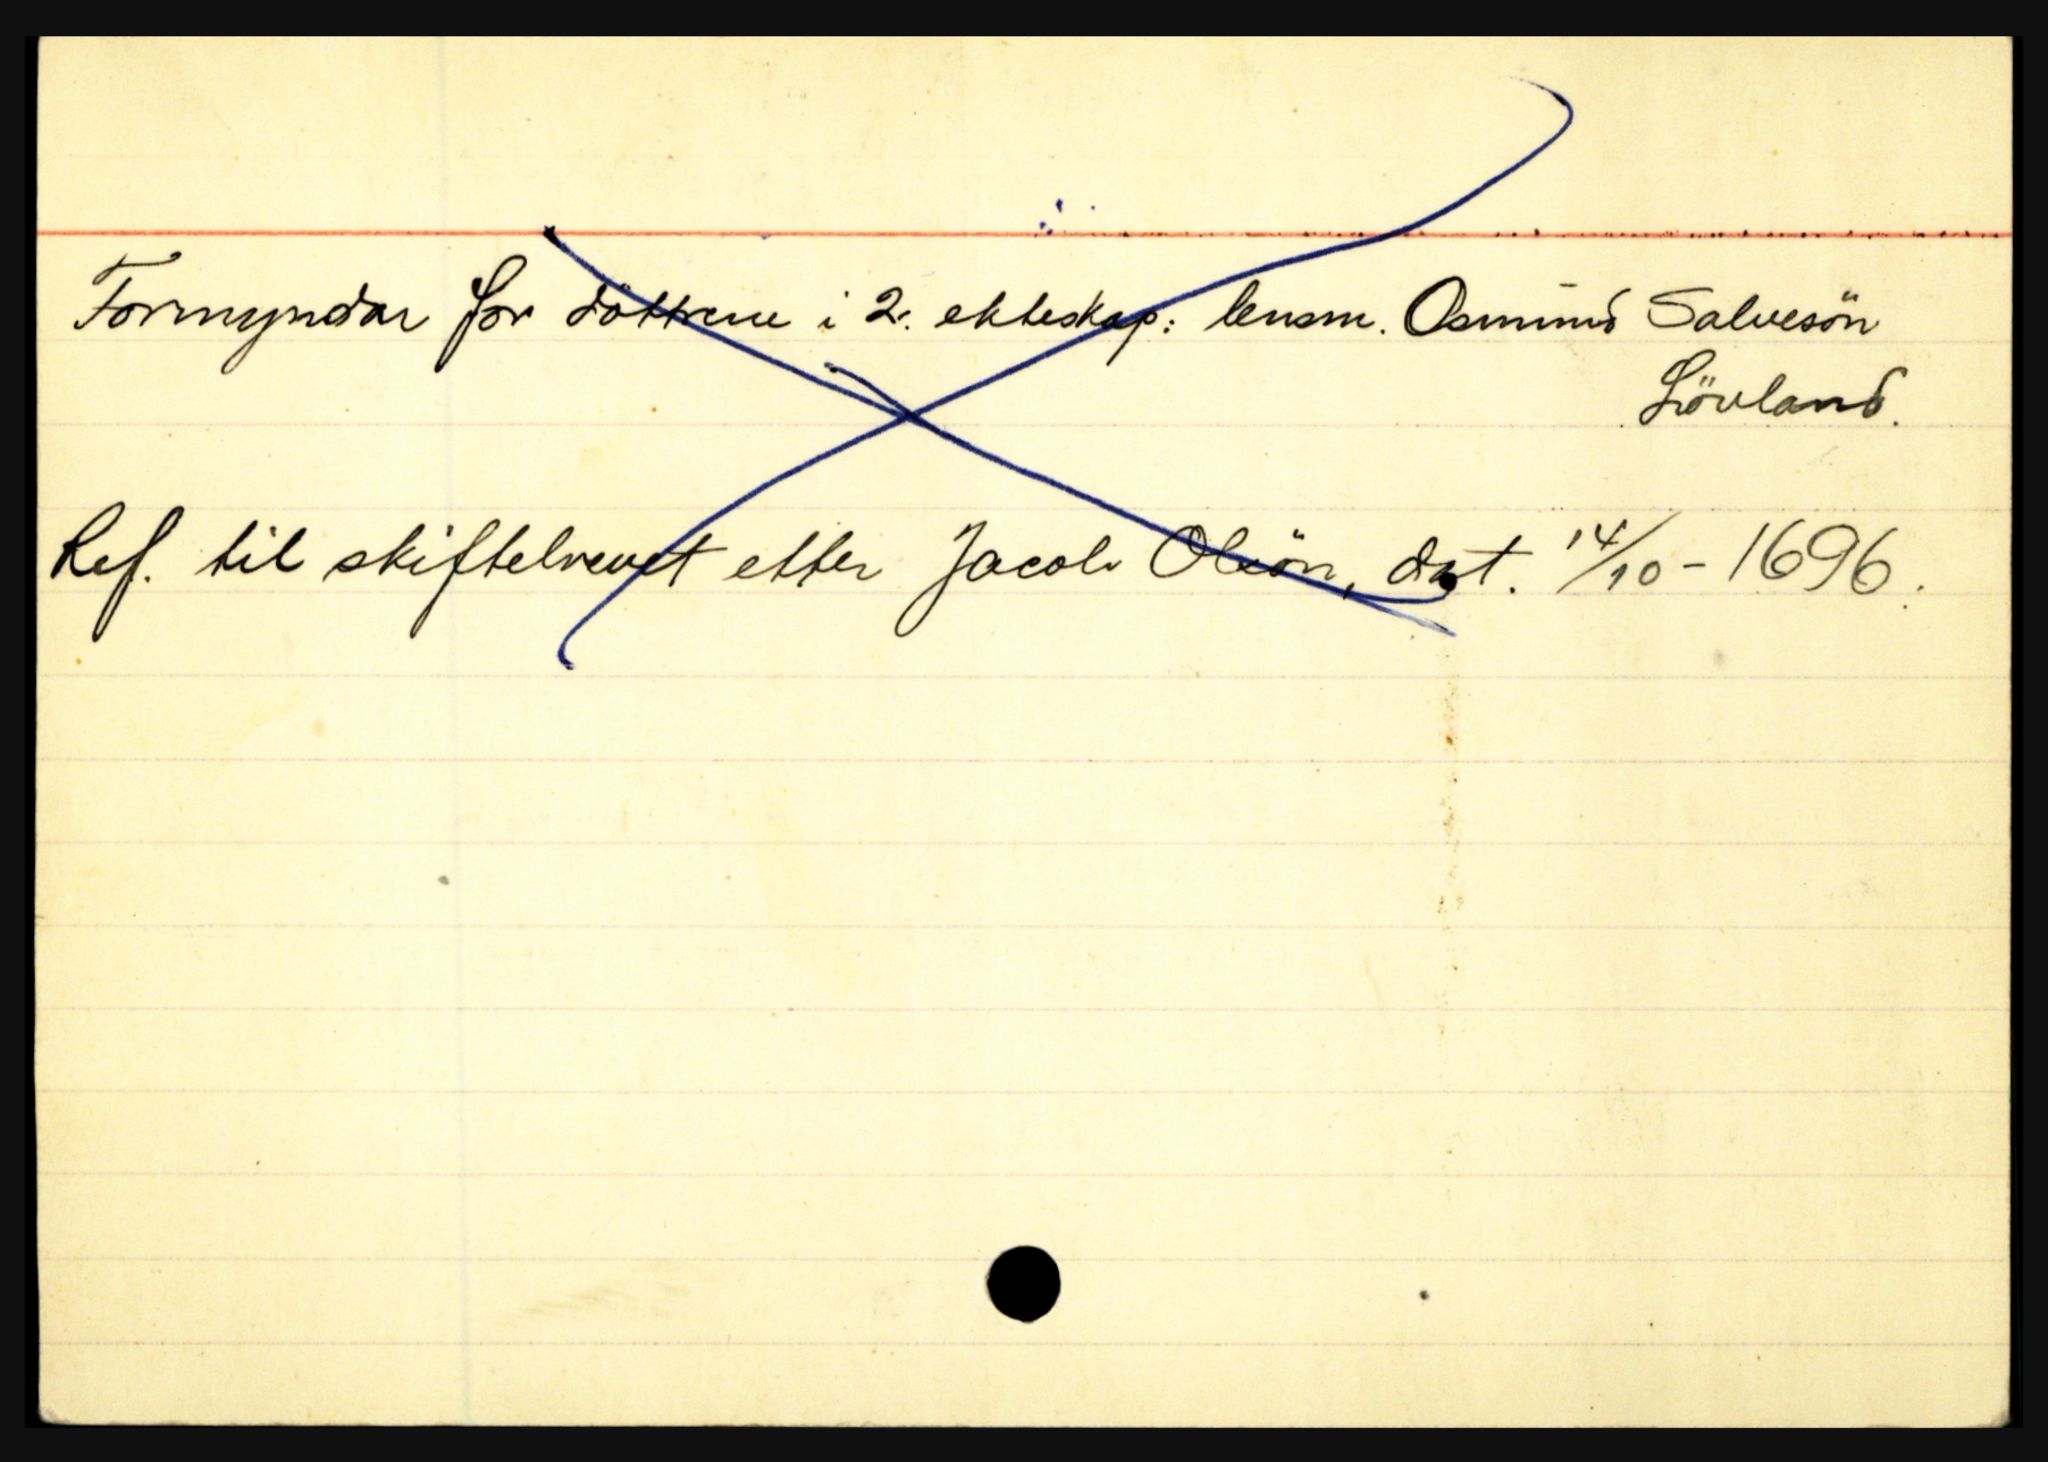 Formyndar for döttrene i 2. ekteskap: lensm. Osmund Salvesön
Lövland.
Ref. til skiftebrevet etter Jacob Olsön, dat. 14/10 - 1696.